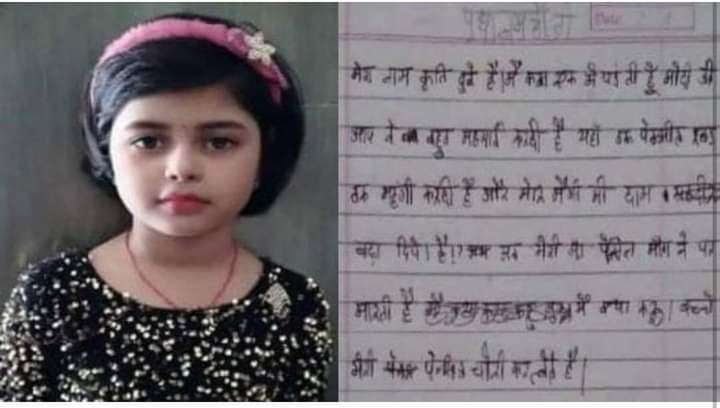 प्रधानमंत्री जी
Date
मेरा नाम कृति दुबे है। मै कक्षा एक मे पढ़ती हूँ मोदी जी
आप ने बहुत महगाई करदी है यहाँ तक पेनसील रबड़
तक महगी करदी है और मेरे मैगी की दाम भी
बढ़ा दिये। है। अब मेरी मा पेंसिल माँग ने पर
मारती है मै क्या करू। बच्चे
मेरी पेनसिल चोरी कर लेते है।